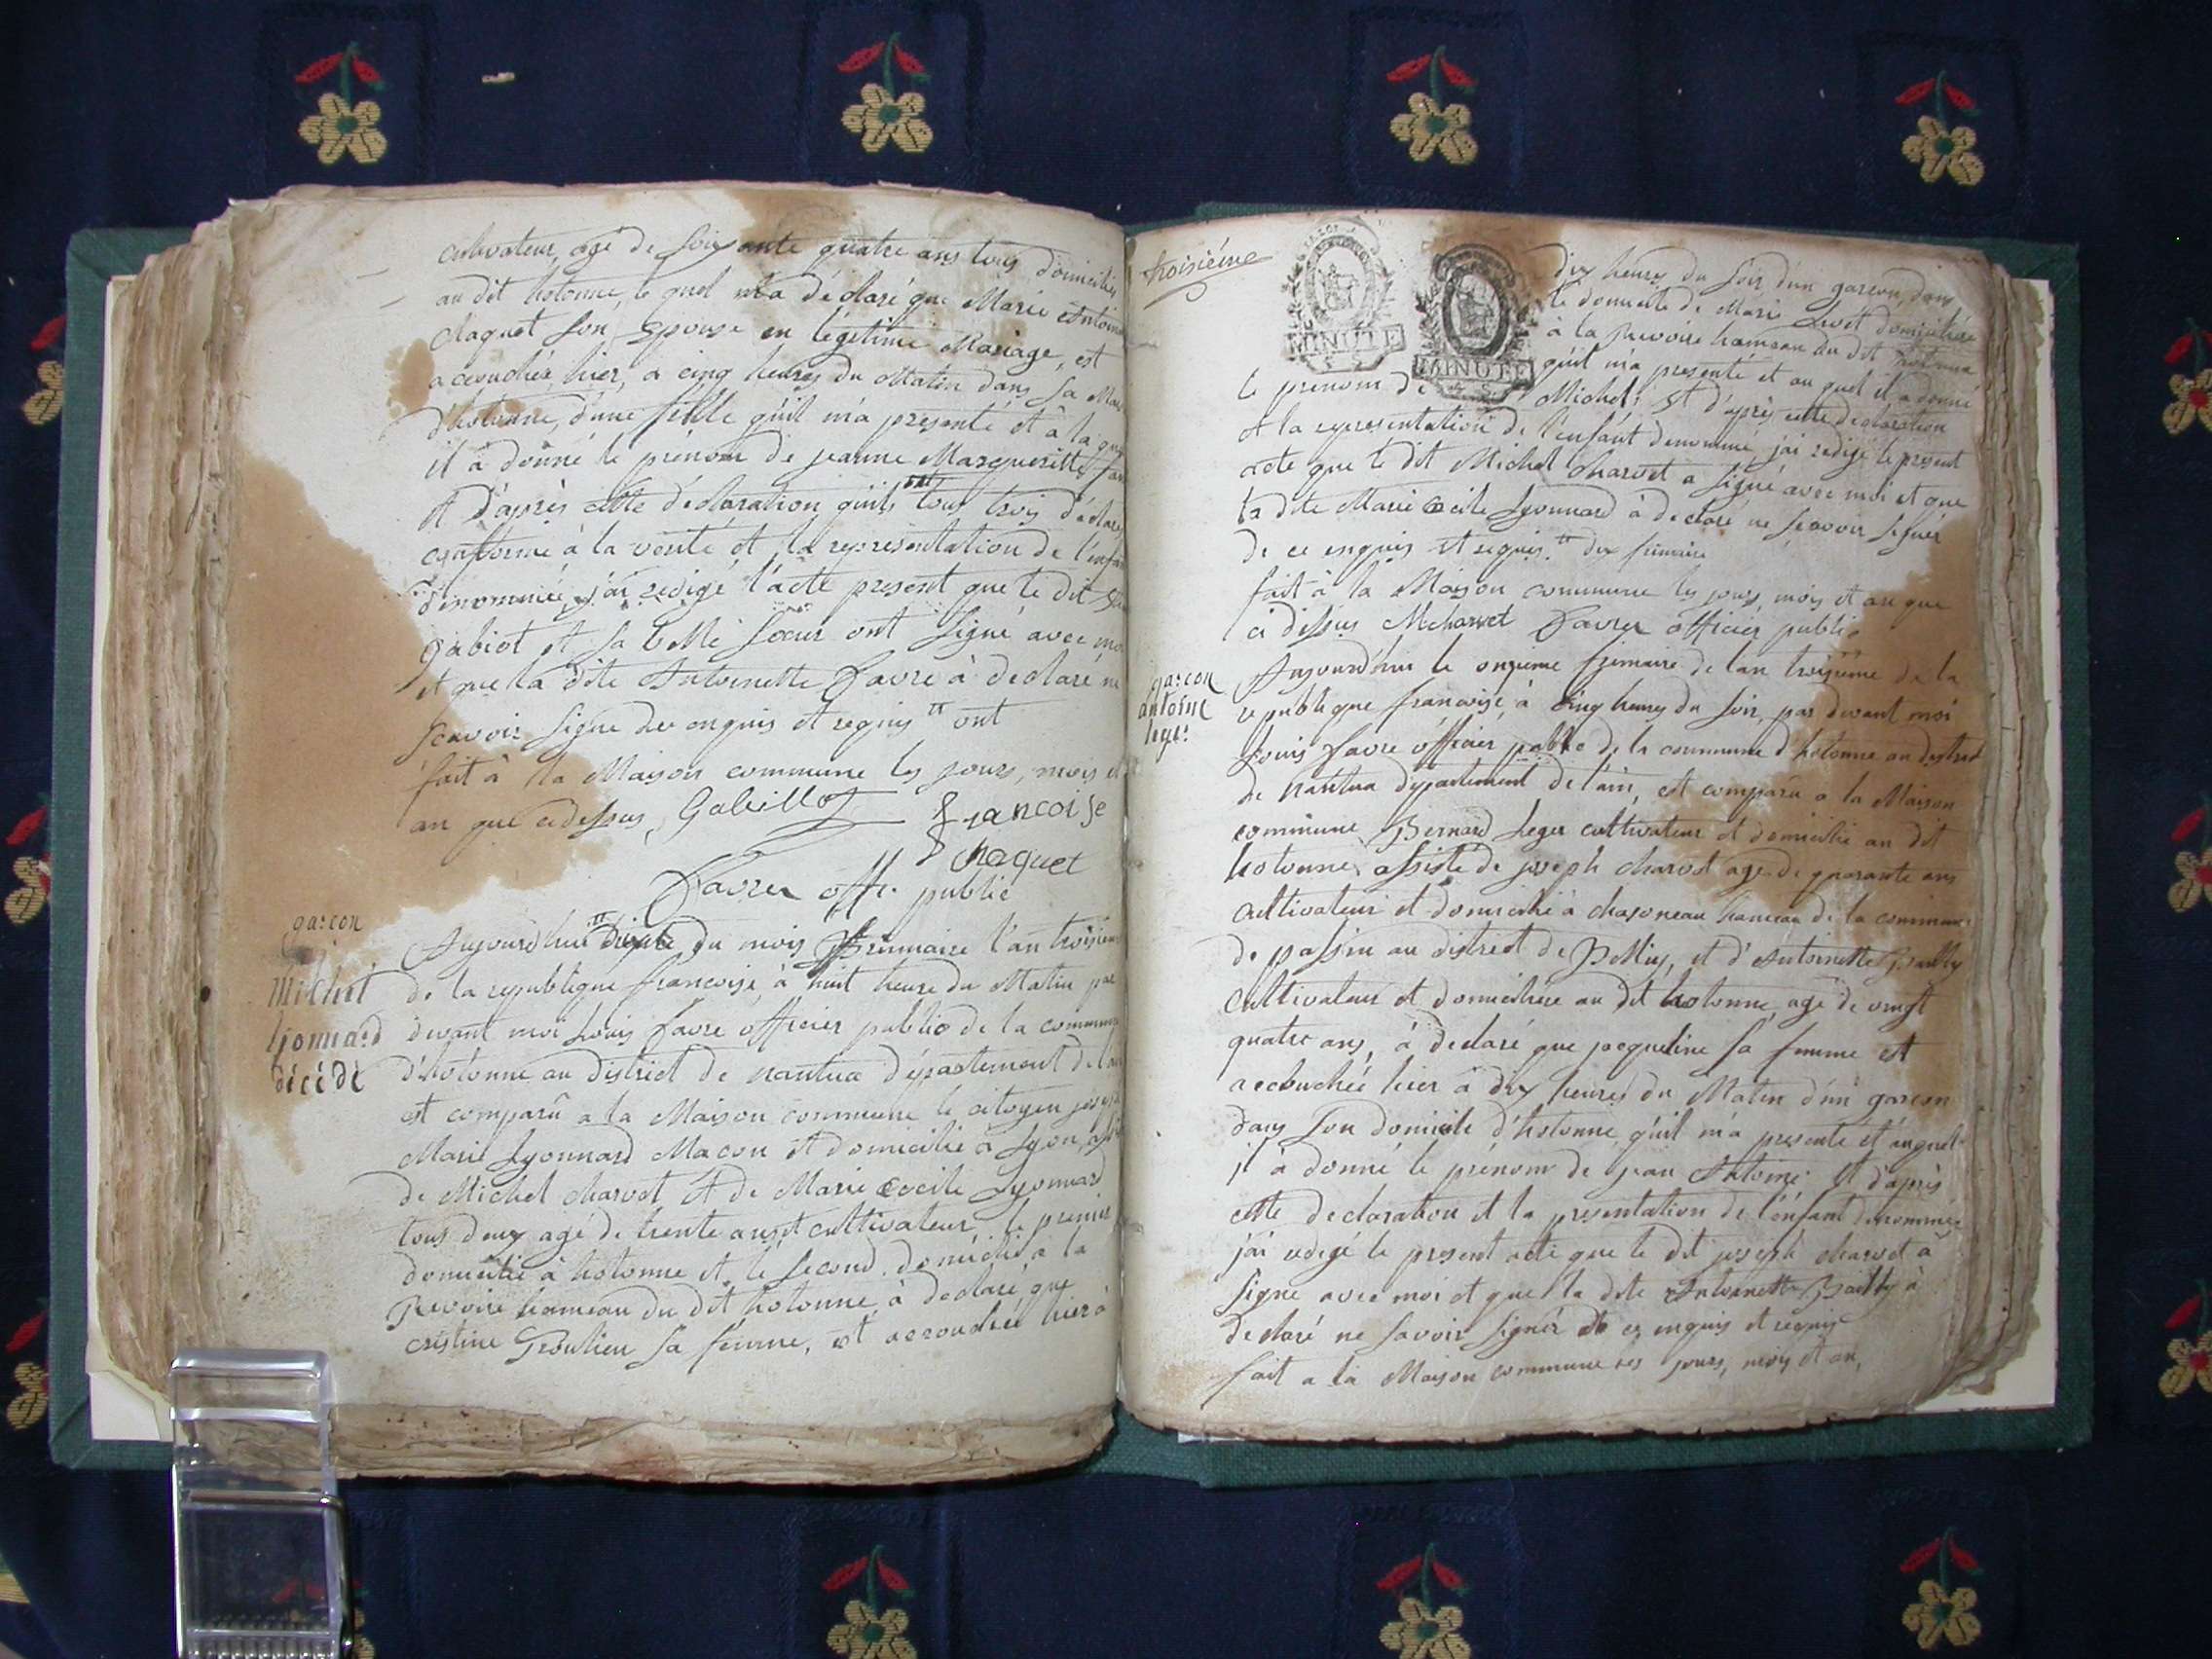 cultivateur, agé de soixante quatre ans tous domiciliés
au dit hotonne, le quel m'a déclaré que Marie Antoin
Claquet son Epouse en légitime Mariage, est
accouchée, hier, a cinq heures du Matin dans sa Mai
d'hotonne, d'une fille qu'il m'a presenté et à la que
il à donné le prénom de jeanne Marguerite
Et D'après cette déclaration qu'ils ont tous trois déclaré
conforme à la verité et la representation de l'enfan
denommée, j'ai redigé l'acte present que le dit
gabiot et sa belle soeur ont signé avec mo
et que la dite Antoinette favre à declaré ne
scavoir signe de enquis et requis ont
fait à la Maison commune les jours, mois et
an que cidessus, Gabillot francoise
chaquet
favre offi. public
garcon
Michel
lyonnard
décédé
Aujourd'hui du mois frimaire l'an troisieme
de la republique francoise, à huit heure du Matin par
devant moi Louis favre officier public de la commune
d'hotonne au district de nantua département de l'ain
est comparû a la Maison commune le citoyen joseph
Marie Lyonnard Macon et domicilié à Lyon,
de Michel charvet et de Marie Cecile Lyonnard
tous deux agé de trente ans et cultivateur, le premier
domicilié à hotonne et le second domicilié à la
Revoire hameau du dit hotonne, à declaré que
cristine sa femme, est accouchée hier à
troisiéme
MINUTE
MINUTE
dix heures du soir d'un garcon, dans
le domicile de Marie domiciliée
à la Revoire hameau du dit hotonne
qu'il m'a presenté et au quel il a donné
le prenom de Michel; et d'après cette declaration
et la representation de l'enfant denommé, j'ai redigé le present
acte que le dit Michel charvet a signé avec moi et que
la dite Marie Cecile Lyonnard à declaré ne scavoir signer
de ce enquis et requis. dix frimaire
fait à la Maison commune les jours, mois et an que
ci dessus Mcharvet favre officier public
garcon
antoine
leger
Aujourd'hui le onzieme frimaire de l'an troisieme de la
republique francoise, à cinq heures du soir, par devant moi
Louis favre officier public de la commune d'hotonne au district
de nantua departement de l'ain, est comparu a la Maison
commune, Bernard Leger cultivateur et domicilié au dit
hotonne, assisté de joseph charvet agé de quarante ans
cultivateur et domicilié à chasoneau hameau de la commune
de passin au district de Belley, et d'Antoinette Bailly
cultivateur et domiciliée au dit hotonne, agé de vingt
quatre ans, à declaré que jacqueline sa femme est
accouchée hier à dix heures du Matin d'un garcon
dans son domicile d'hotonne qu'il m'a presenté et auquel
il à donné le prénom de jean Antoine. Et d'après
cette declaration et la presentation de l'enfant denommé
j'ai redigé le present acte que le dit joseph charvet a
signe avec moi et que la dite Antoinette Bailly à
declaré ne savoir signer de ce enquis et requis
fait a la Maison commune les jours, mois et an,